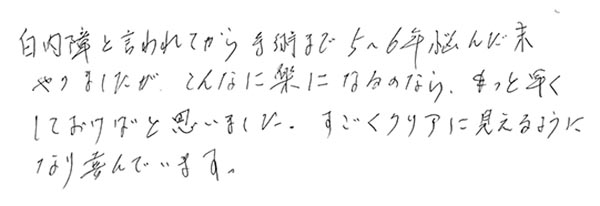 白内障と言われてから手術まで5~6年悩んだ末
やりましたが、こんなに楽になるのなら、もっと早く
しておけばと思いました。すごくクリアに見えるように
なり喜んでいます。